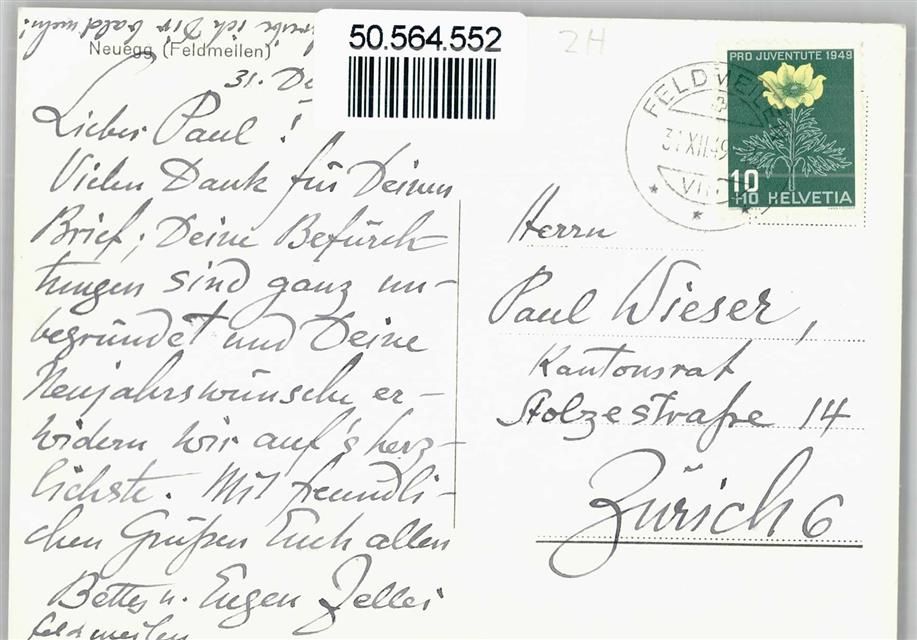 schreibe ich Dir bald mehr!
Neuegg (Feldmeilen)
31. De
Lieber Paul!
Vielen Dank für Deinen
Brief; Deine Befürch-
tungen sind ganz un-
begründet und Deine
Neujahrswünsche er-
widern wir auf's herz-
lichste. Mit freundli-
chen Grüßen Euch allen
Betty u. Eugen
Feldmeilen
50.564.552
2H
PRO JUVENTUTE 1949
10
+10 HELVETIA
FELDMEILEN
31.XII.49
VIII
Herrn
Paul Wieser,
Kantonsrat
Stolzestraße 14
Zürich 6